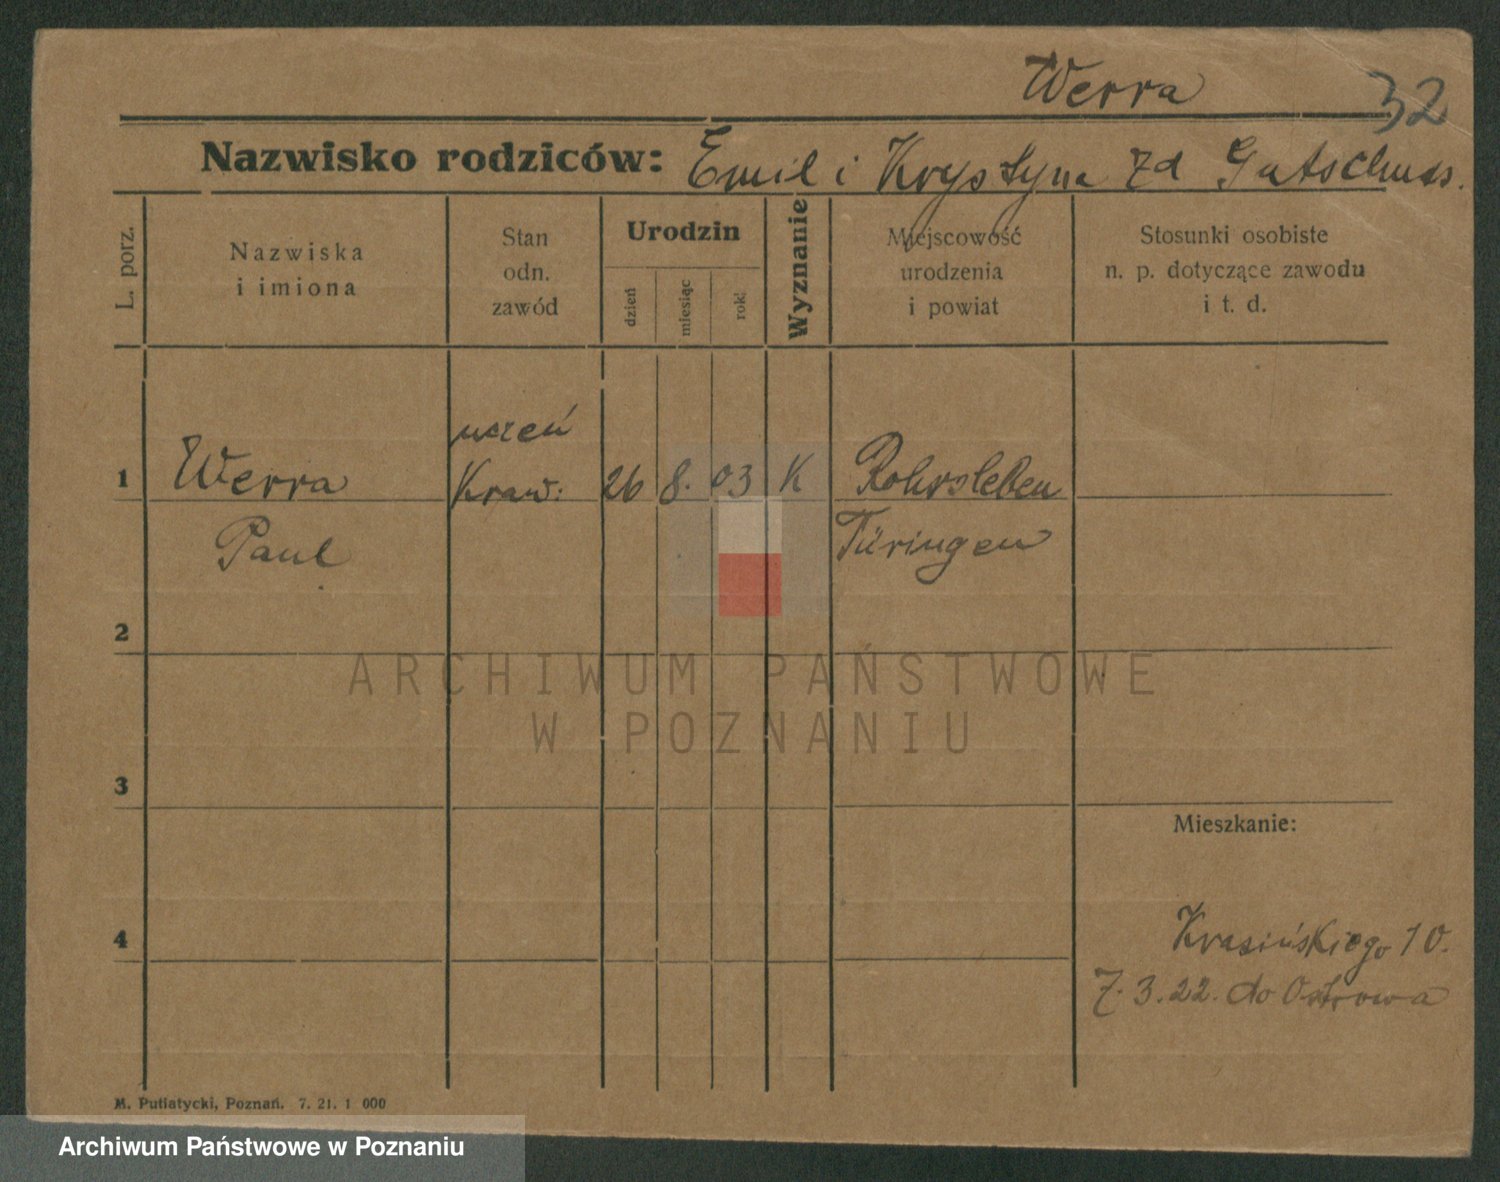 Werra
32
Nazwisko rodziców: Emil i Krystyna zd Gutschuss.
L. porz.
Nazwiska
i imiona
Stan
odn.
zawód
Urodzin
dzień
miesiąc
rok
Wyznanie
Miejscowość
urodzenia
i powiat
Stosunki osobiste
n. p. dotyczące zawodu
i t. d.
uczeń
1 Werra Kraw. 26 8. 03 K Rohrsleben
Paul Türingen
2
ARCHIWUM PAŃSTWOWE
W POZNANIU
3
Mieszkanie:
4
Krasińskiego 10.
7. 3. 22. do Ostrowa
M. Putiatycki, Poznań. 7. 21. 1 000
Archiwum Państwowe w Poznaniu